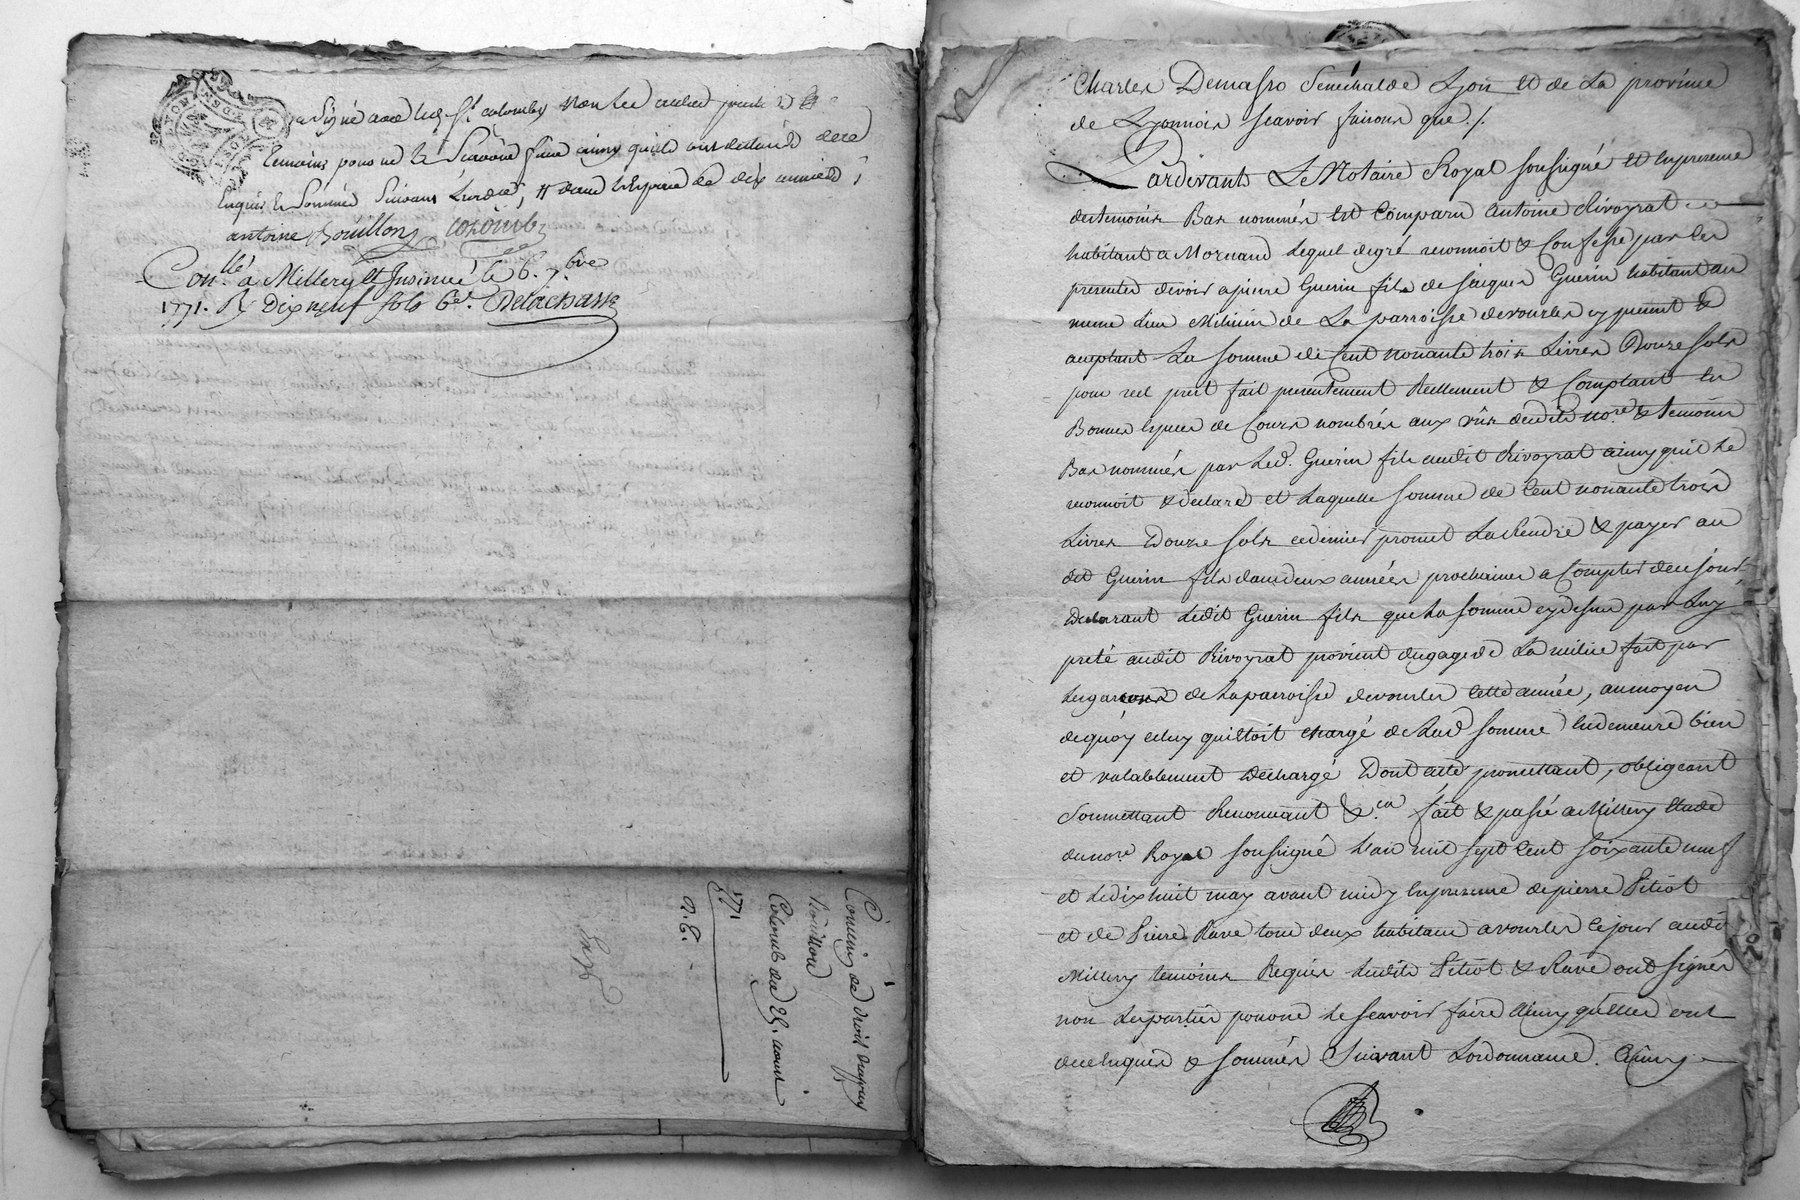 a signé avec led. St. colomb,
temoins pour ne le Scavoir faire ainsy quils ont declaré de ce
enquis & Sommés Suivant Lordce,
antoine Bouillon colomb
Conllé a Millery & Insinué le 6. 7.bre
1771. R Dix neuf sols 6d. Delachassé
Convin de droit
Bouillon
Colomb du 25. aout
1771
Charles Demasso Senechal de Lyon et de La province
de Lyonnois scavoir faisons que ./.
Pardevant Le Notaire Royal soussigné et en presence
des temoins Bas nommés est Comparu Antoine Rivoyrat
habitant a Mornand lequel de gré reconnoit & Confesse par les
presentes devoir a pierre Guerin fils de Jacques Guerin habitant au
meme Lieu Milicien de La parroisse de vourles cy present &
acceptant La somme de Cent nonante trois Livres Douze sols
pour reel prest fait presentement Reellement & Comptant en
Bonnes especes de Cours nombrés aux vûs desdits nore. & temoins
Bas nommés par Led. Guerin fils audit Rivoyrat ainsy quil le
reconnoit & declare et laquelle somme de Cent nonante trois
Livres Douze sols ce dernier promet La Rendre & payer au
dit Guerin fils dans deux années prochaines a Compter de ce jour
Declarant ledit Guerin fils que La somme cy dessus par Luy
preté audit Rivoyrat provient du gage de La milice fait par
les garcons de La parroisse de vourles cette année, au moyen
de quoy celuy qui etoit chargé de Lad somme en demeure bien
et valablement Dechargé Dont acte promettant, obligeant
Soumettant Renonceant &.ca fait & passé a Millery Etude
du nore Royal soussigné L'an mil sept cent soixante neuf
et Le dix huit may avant midy en presence de pierre Pitiot
et de Pierre Rave tous deux habitans a vourles ce jour audit
Millery temoins Requis Lesdits Pitiot & Rave ont signés
non les parties pour ne le scavoir faire ainsy qu'elles ont
de ce enquises & sommés Suivant Lordonnance. Ainsy